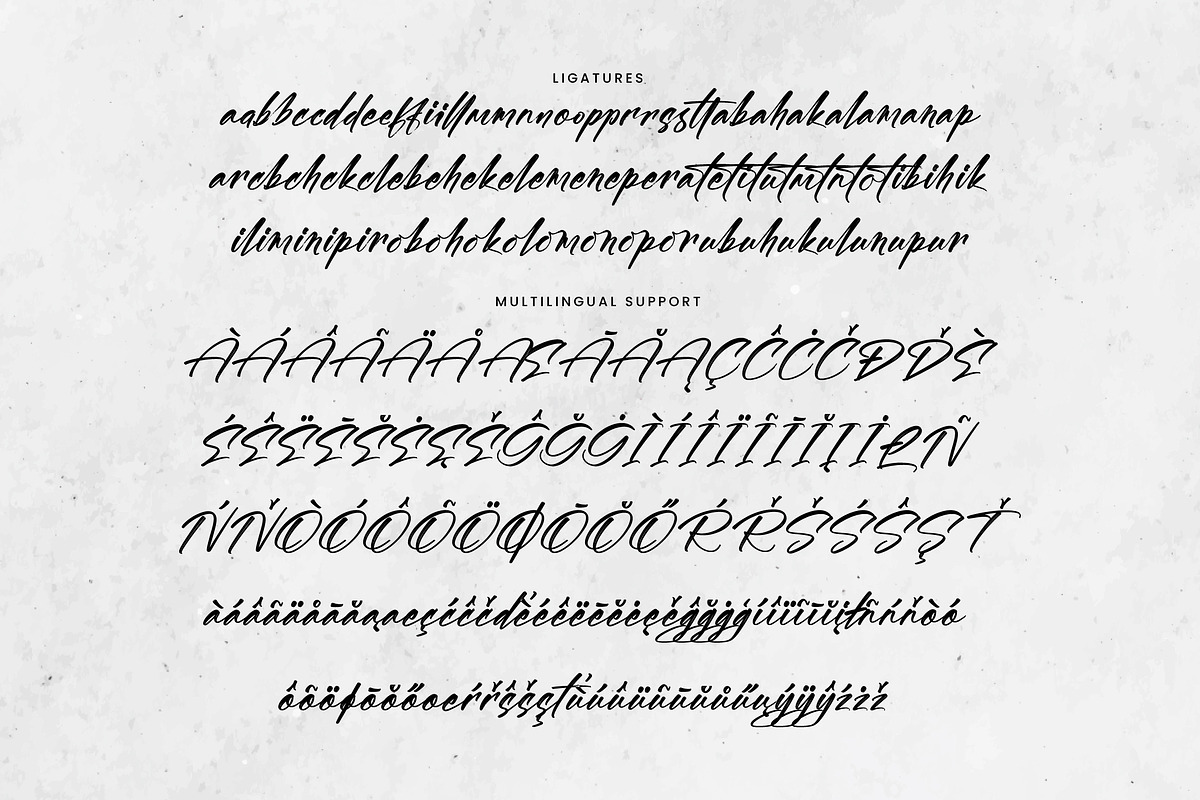 LIGATURES
aabbccddeeffiillmmnnoopprrssttabahakalamanap
arcbchckclebehekelemeneperatetitutmtntotibihik
iliminipirobohokolomonoporubuhukulunupur
MULTILINGUAL SUPPORT
ÀÁÂÃÄÅÆĀĂĄÇĈĊČĐĎÈ
ÉÊËĒĔĖĘĚĜĞĠÌÍÎÏĨĪĬĮİŁÑ
ŃŇÒÓÔÕÖØŌŎŐŔŘŚŜŞŤ
àáâãäåāăąæçćĉčďèéêëēĕėęěĝğġģíîïĩīĭįłñńňòó
ôõöøōŏőœŕřŝšşťùúûüũūŭůűųýÿŷźżž